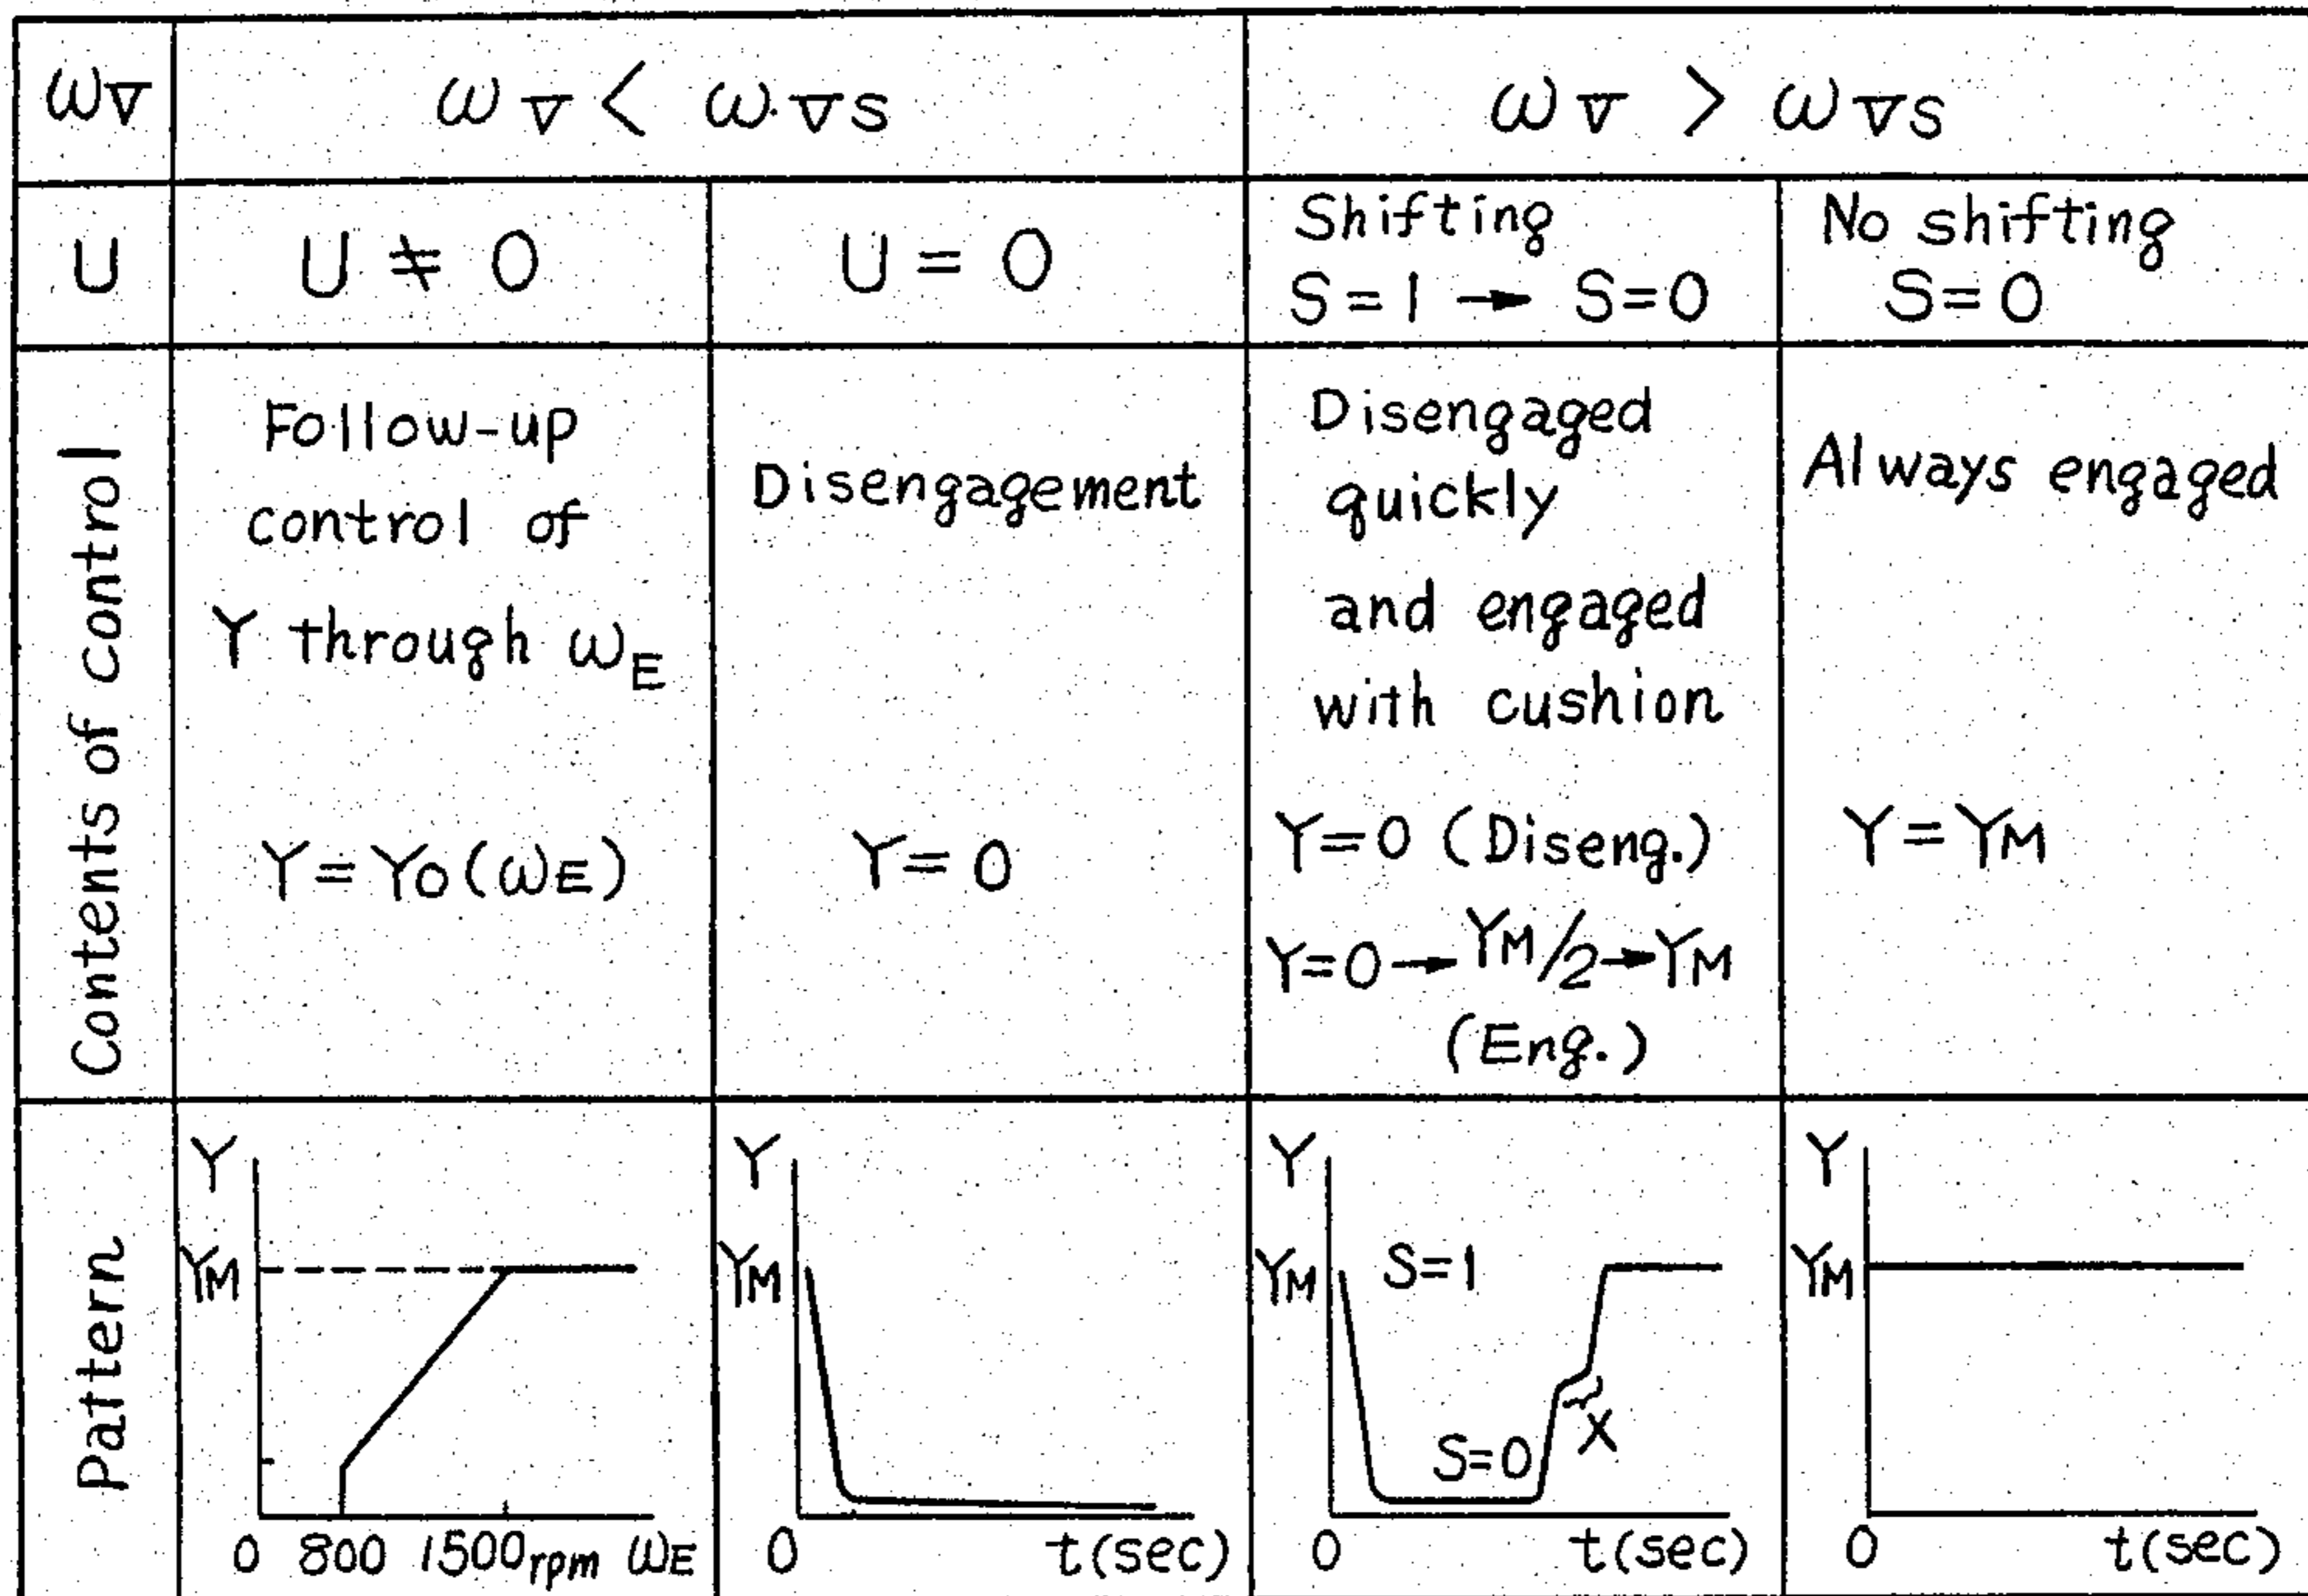 ωV
ωV < ωVS
ωV > ωVS
U
U ≠ 0
U = 0
Shifting
S=1 → S=0
No shifting
S=0
Contents of control
Follow-up
control of
Y through ωE
Y=YO(ωE)
Disengagement
Y=0
Disengaged
quickly
and engaged
with cushion
Y=0 (Diseng.)
Y=0→YM/2→YM
(Eng.)
Always engaged
Y=YM
Pattern
Y
YM
0 800 1500rpm ωE
Y
YM
0 t(sec)
Y
YM
S=1
S=0
X
0 t(sec)
Y
YM
0 t(sec)